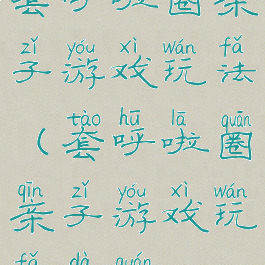 套呼啦圈亲
zǐ yóu xì wán fǎ
子游戏玩法
tào hū lā quān
(套呼啦圈
qīn zǐ yóu xì wán
亲子游戏玩
fǎ dà quán